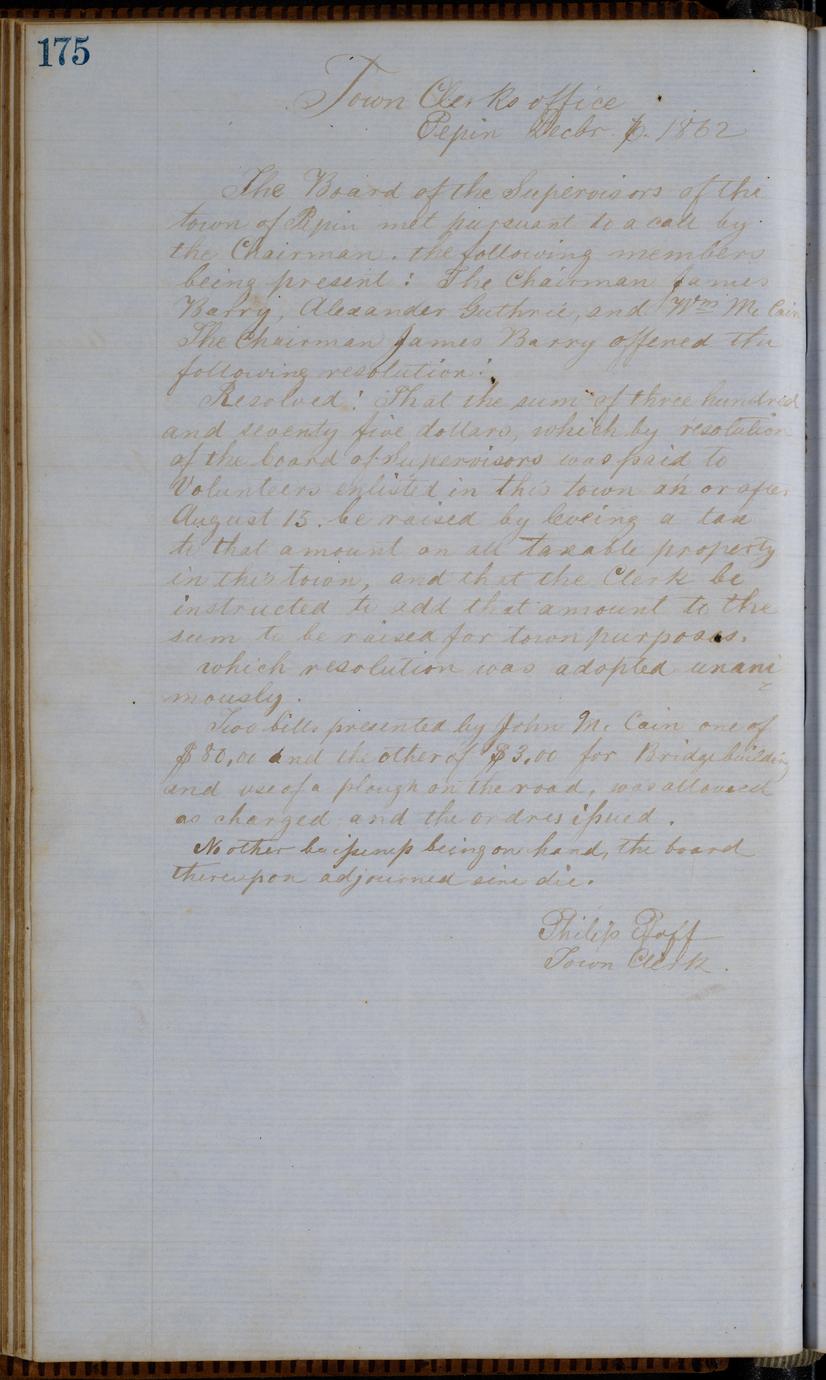 175
Town Clerks office
Pepin Decbr. 1862
The Board of the Supervisors of the
town of Pepin met pursuant to a call by
the Chairman. the following members
being present: The Chairman James
Barry, Alexander Guthrie, and Wm Mc Cain
The Chairman James Barry offered the
following resolution:
Resolved: That the sum of three hundred
and seventy five dollars, which by resolution
of the board of Supervisors was paid to
Volunteers enlisted in this town on or after
August 15. be raised by leveing a tax
to that amount on all taxable property
in this town, and that the Clerk be
instructed to add that amount to the
sum to be raised for town purposes.
which resolution was adopted unani
mously.
Two bills presented by John Mc Cain one of
$80,00 and the other of $3,00 for Bridgebuilding
and use of a plough on the road, was allowed
as charged and the ordres issued.
No other buissness being on hand, the board
thereupon adjourned sine die.
Philip Pfaff
Town Clerk.